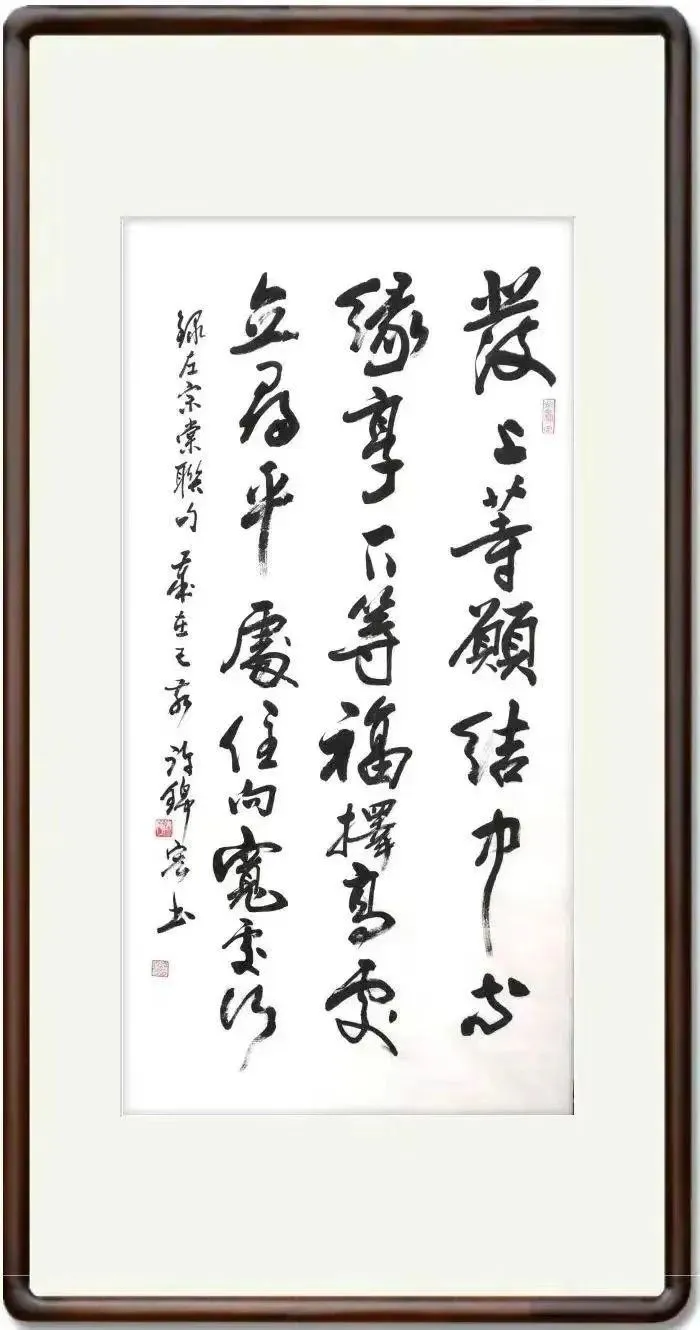 發上等願結中等
緣享下等福擇高處
立尋平處住向寬處行
錄左宗棠聯句 歲在己亥 許錦書